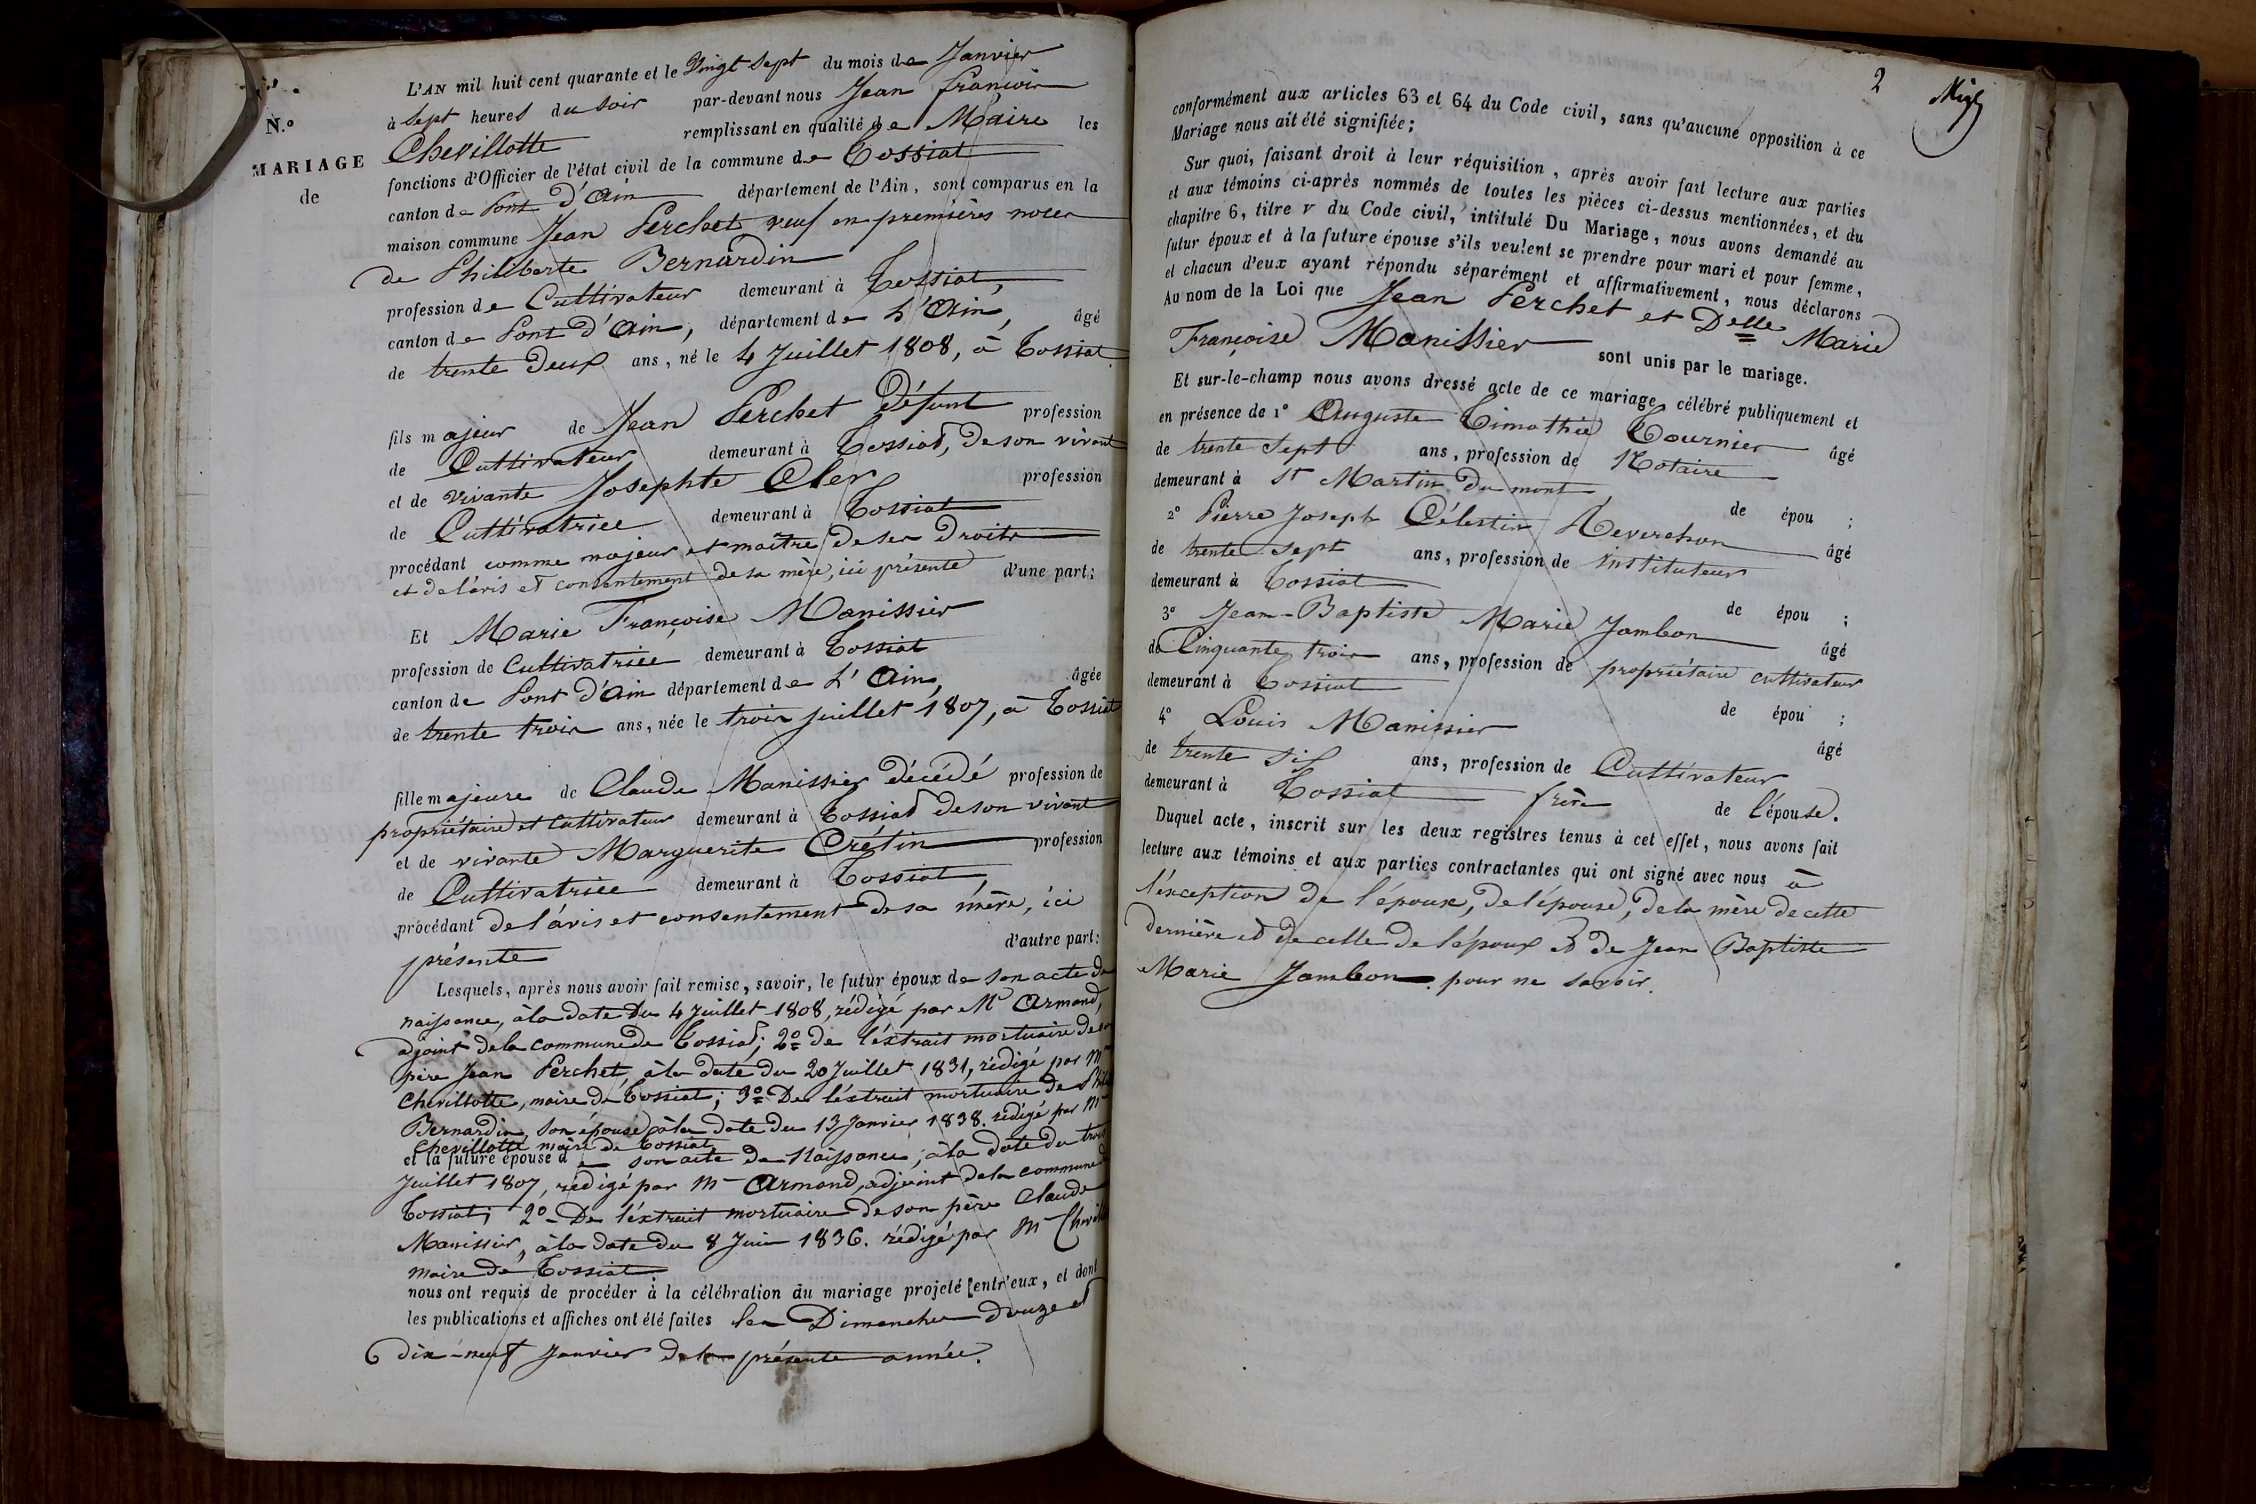 N.º
MARIAGE
de
L'AN mil huit cent quarante et le Vingt Sept du mois de Janvier
à Sept heures du soir par-devant nous Jean françois
Chevillotte remplissant en qualité de Maire les
fonctions d'Officier de l'état civil de la commune de Tossiat
canton de Pont d'Ain département de l'Ain, sont comparus en la
maison commune Jean Perchet veuf en premières noces
de Philiberte Bernardin
profession de Cultivateur demeurant à Tossiat,
canton de Pont d'Ain, département de L'Ain, âgé
de trente deux ans, né le 4 Juillet 1808, à Tossiat
fils majeur de Jean Perchet Défunt profession
de Cultivateur demeurant à Tossiat, de son vivant
et de vivante Josephte Clerc profession
de Cultivatrice demeurant à Tossiat
procédant comme majeur et maître de ses Droits
et de l'avis et consentement de sa mère, ici présente d'une part;
Et Marie Françoise Manissier
profession de Cultivatrice demeurant à Tossiat
canton de Pont d'Ain département de L'Ain, âgée
de trente trois ans, née le trois juillet 1807, à Tossiat
fille majeure de Claude Manissier décédé profession de
propriétaire et cultivateur demeurant à Tossiat de son vivant
et de vivante Marguerite Crétin profession
de Cultivatrice demeurant à Tossiat,
procédant de l'avis et consentement de sa mère, ici
présente d'autre part:
Lesquels, après nous avoir fait remise, savoir, le futur époux de son acte de
naissance, à la date du 4 Juillet 1808, rédigé par Mr Armand,
adjoint de la commune de Tossiat; 2º de l'éxtrait mortuaire de son
père Jean Perchet, à la date du 20 Juillet 1831, rédigé par Mr
Chevillotte, maire de Tossiat; 3º De l'éxtrait mortuaire de Phil
Bernardin son épouse à la date du 13 Janvier 1838. rédigé par Mr
Chevillotte maire de Tossiat
et la future épouse de son acte de Naissance, à la date du trois
Juillet 1807, rédigé par Mr Armand, adjoint de la commune de
Tossiat; 2º De l'éxtrait mortuaire de son père Claude
Manissier, à la date du 8 Juin 1836. rédigé par Mr Chevill
maire de Tossiat
nous ont requis de procéder à la célébration du mariage projeté entr'eux, et dont
les publications et affiches ont été faites les Dimanches douze et
dix-neuf Janvier de la présente année.
2
conformément aux articles 63 et 64 du Code civil, sans qu'aucune opposition à ce
Mariage nous ait été signifiée;
Sur quoi, faisant droit à leur réquisition, après avoir fait lecture aux parties
et aux témoins ci-après nommés de toutes les pièces ci-dessus mentionnées, et du
chapitre 6, titre v du Code civil, intitulé Du Mariage, nous avons demandé au
futur époux et à la future épouse s'ils veulent se prendre pour mari et pour femme,
et chacun d'eux ayant répondu séparément et affirmativement, nous déclarons
Au nom de la Loi que Jean Perchet et Delle Marie
Françoise Manissier sont unis par le mariage.
Et sur-le-champ nous avons dressé acte de ce mariage célébré publiquement et
en présence de 1º Auguste Timothée Tournier âgé
de trente sept ans, profession de Notaire
demeurant à St Martin du mont de épou ;
2º Pierre Joseph Célestin Reverchon âgé
de trente sept ans, profession de instituteur
demeurant à Tossiat de épou ;
3º Jean-Baptiste Marie Jambon âgé
de Cinquante trois ans, profession de propriétaire cultivateur
demeurant à Tossiat de épou ;
4º Louis Manissier âgé
de trente six ans, profession de Cultivateur
demeurant à Tossiat frère de l'épouse.
Duquel acte, inscrit sur les deux registres tenus à cet effet, nous avons fait
lecture aux témoins et aux parties contractantes qui ont signé avec nous à
l'éxception de l'époux, de l'épouse, de la mère de cette
dernière et de celle de l'époux et de Jean Baptiste
Marie Jambon pour ne savoir.